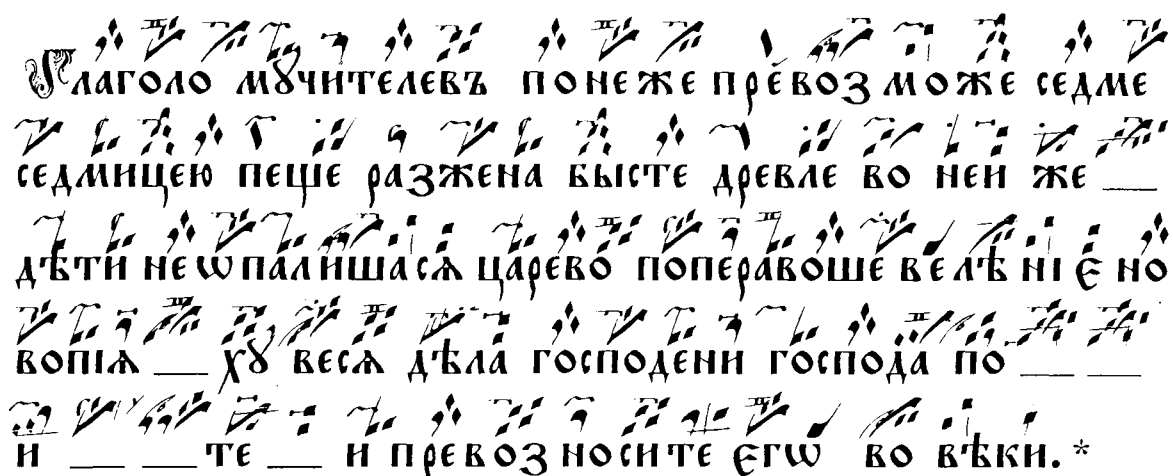 Глаголо мꙋчителевъ понеже превозможе седме
седмицею пеще разжена бысте древле во неи же __
дѣти не ѡпалишасѧ царево поперавоше велѣніе но
вопіѧ __ хꙋ весѧ дѣла господени господа по __ __
и __ __ те __ и превозносите егѡ во вѣки. *